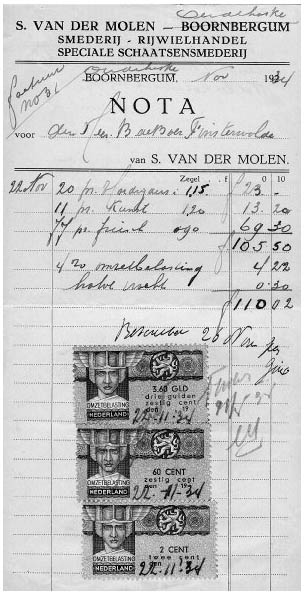 Oudehaske
S. VAN DER MOLEN — BOORNBERGUM
SMEDERIJ - RIJWIELHANDEL
SPECIALE SCHAATSENSMEDERIJ
Oudehaske
BOORNBERGUM, Nov 1934
factuur
no 31
NOTA
voor den Heer Boer Finsterwolde
van S. VAN DER MOLEN.
Zegel f
22 Nov 20 pr. 1,15 f 23 -
11 pr. Kunst 1,20 13.20
77 pr. friesch 0,90 69.30
f 105.50
4% omzetbelasting 4.22
halve vracht 0.30
f 110 02
26 Nov per
Giro
3.60 GLD
drie gulden
zestig cent
den 19
22.11.34
OMZETBELASTING
NEDERLAND
60 CENT
zestig cent
den 19
22.11.34
OMZETBELASTING
NEDERLAND
2 CENT
twee cent
22.11.34
OMZETBELASTING
NEDERLAND